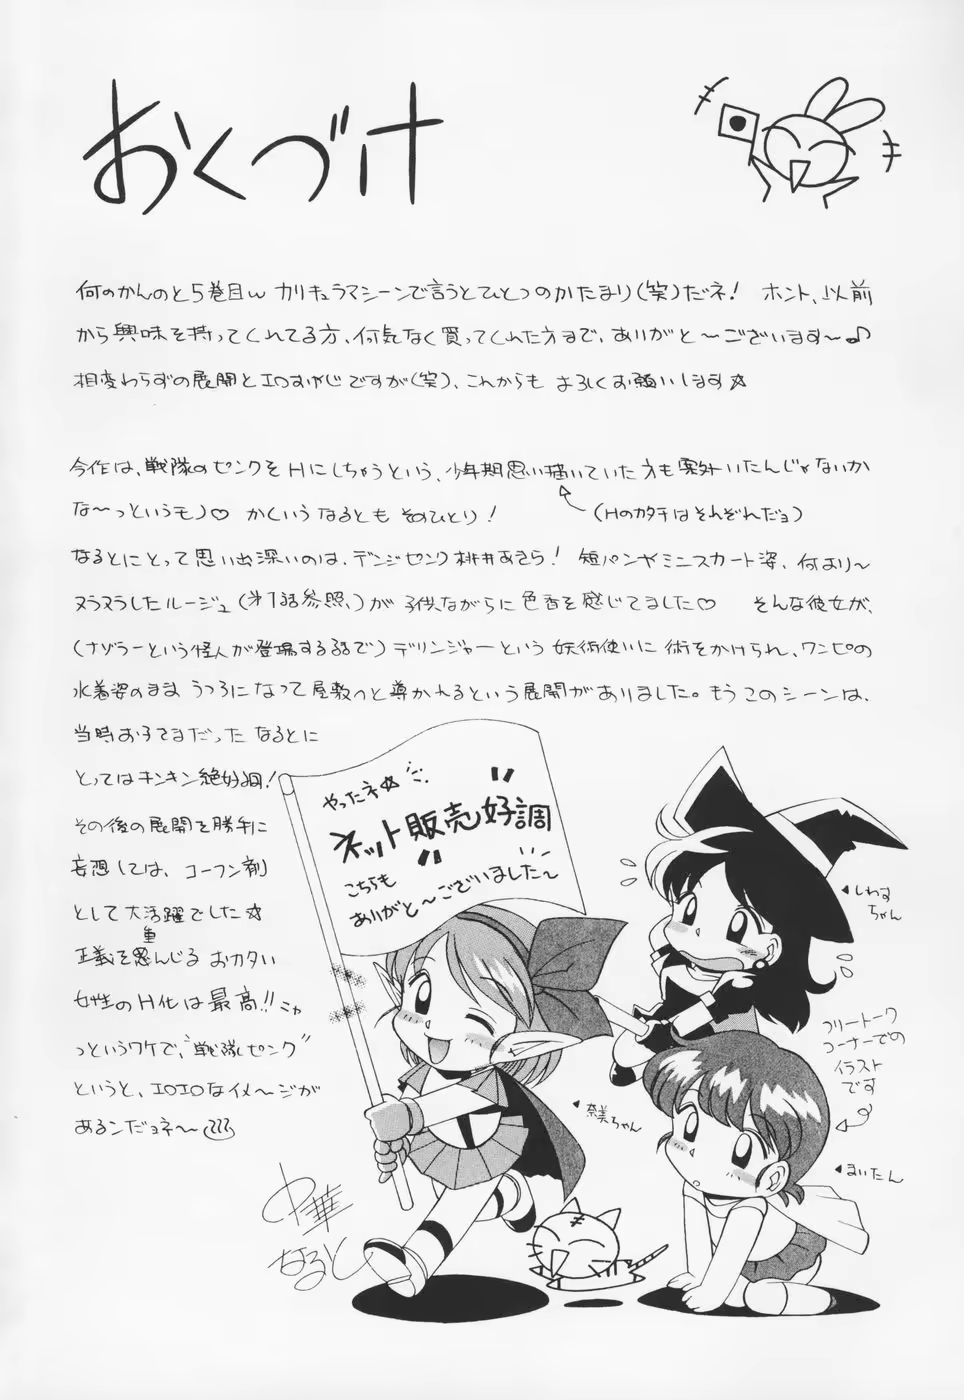 おくづけ
何のかんのと5巻目w カリキュラマシーンで言うとひとつのかたまり(笑)だネ! ホント、以前
から興味を持ってくれてる方、何気なく買ってくれた方まで、ありがと〜ございます〜♪
相変わらずの展開とエロおやじですが(笑)、これからも よろしくお願いします☆
今作は、戦隊のピンクをHにしちゃうという、少年期思い描いていた方も案外いたんじゃないか
な〜っというモノ♡ かくいう なるとも そのひとり!
(Hのカタチはそれぞれだョ)
なるとにとって思い出深いのは、デンジピンク桃井あきら! 短パンやミニスカート姿、何より〜
ヌラヌラしたルージュ(第1話参照、)が 子供ながらに 色香を感じてました♡ そんな彼女が、
(ナゾラーという怪人が登場する話で)デリンジャーという 妖術使いに 術をかけられ、ワンピの
水着姿のまま うつろになって屋敷へと導かれるという展開がありました。もうこのシーンは、
当時お子さまだった なるとに
とってはキンキン絶好調!
その後の展開を勝手に
妄想しては、コーフン剤
として大活躍でした☆
正義を重んじる おカタい
女性のH化は最高!!ニャ
っというワケで、"戦隊ピンク"
というと、エロエロなイメ〜ジが
あるンだョネ〜
中華
なると
やったネ☆
ネット販売好調
こちらも
ありがと〜ございました〜
しわす
ちゃん
フリートーク
コーナーでの
イラスト
です
奈美ちゃん
まいたん